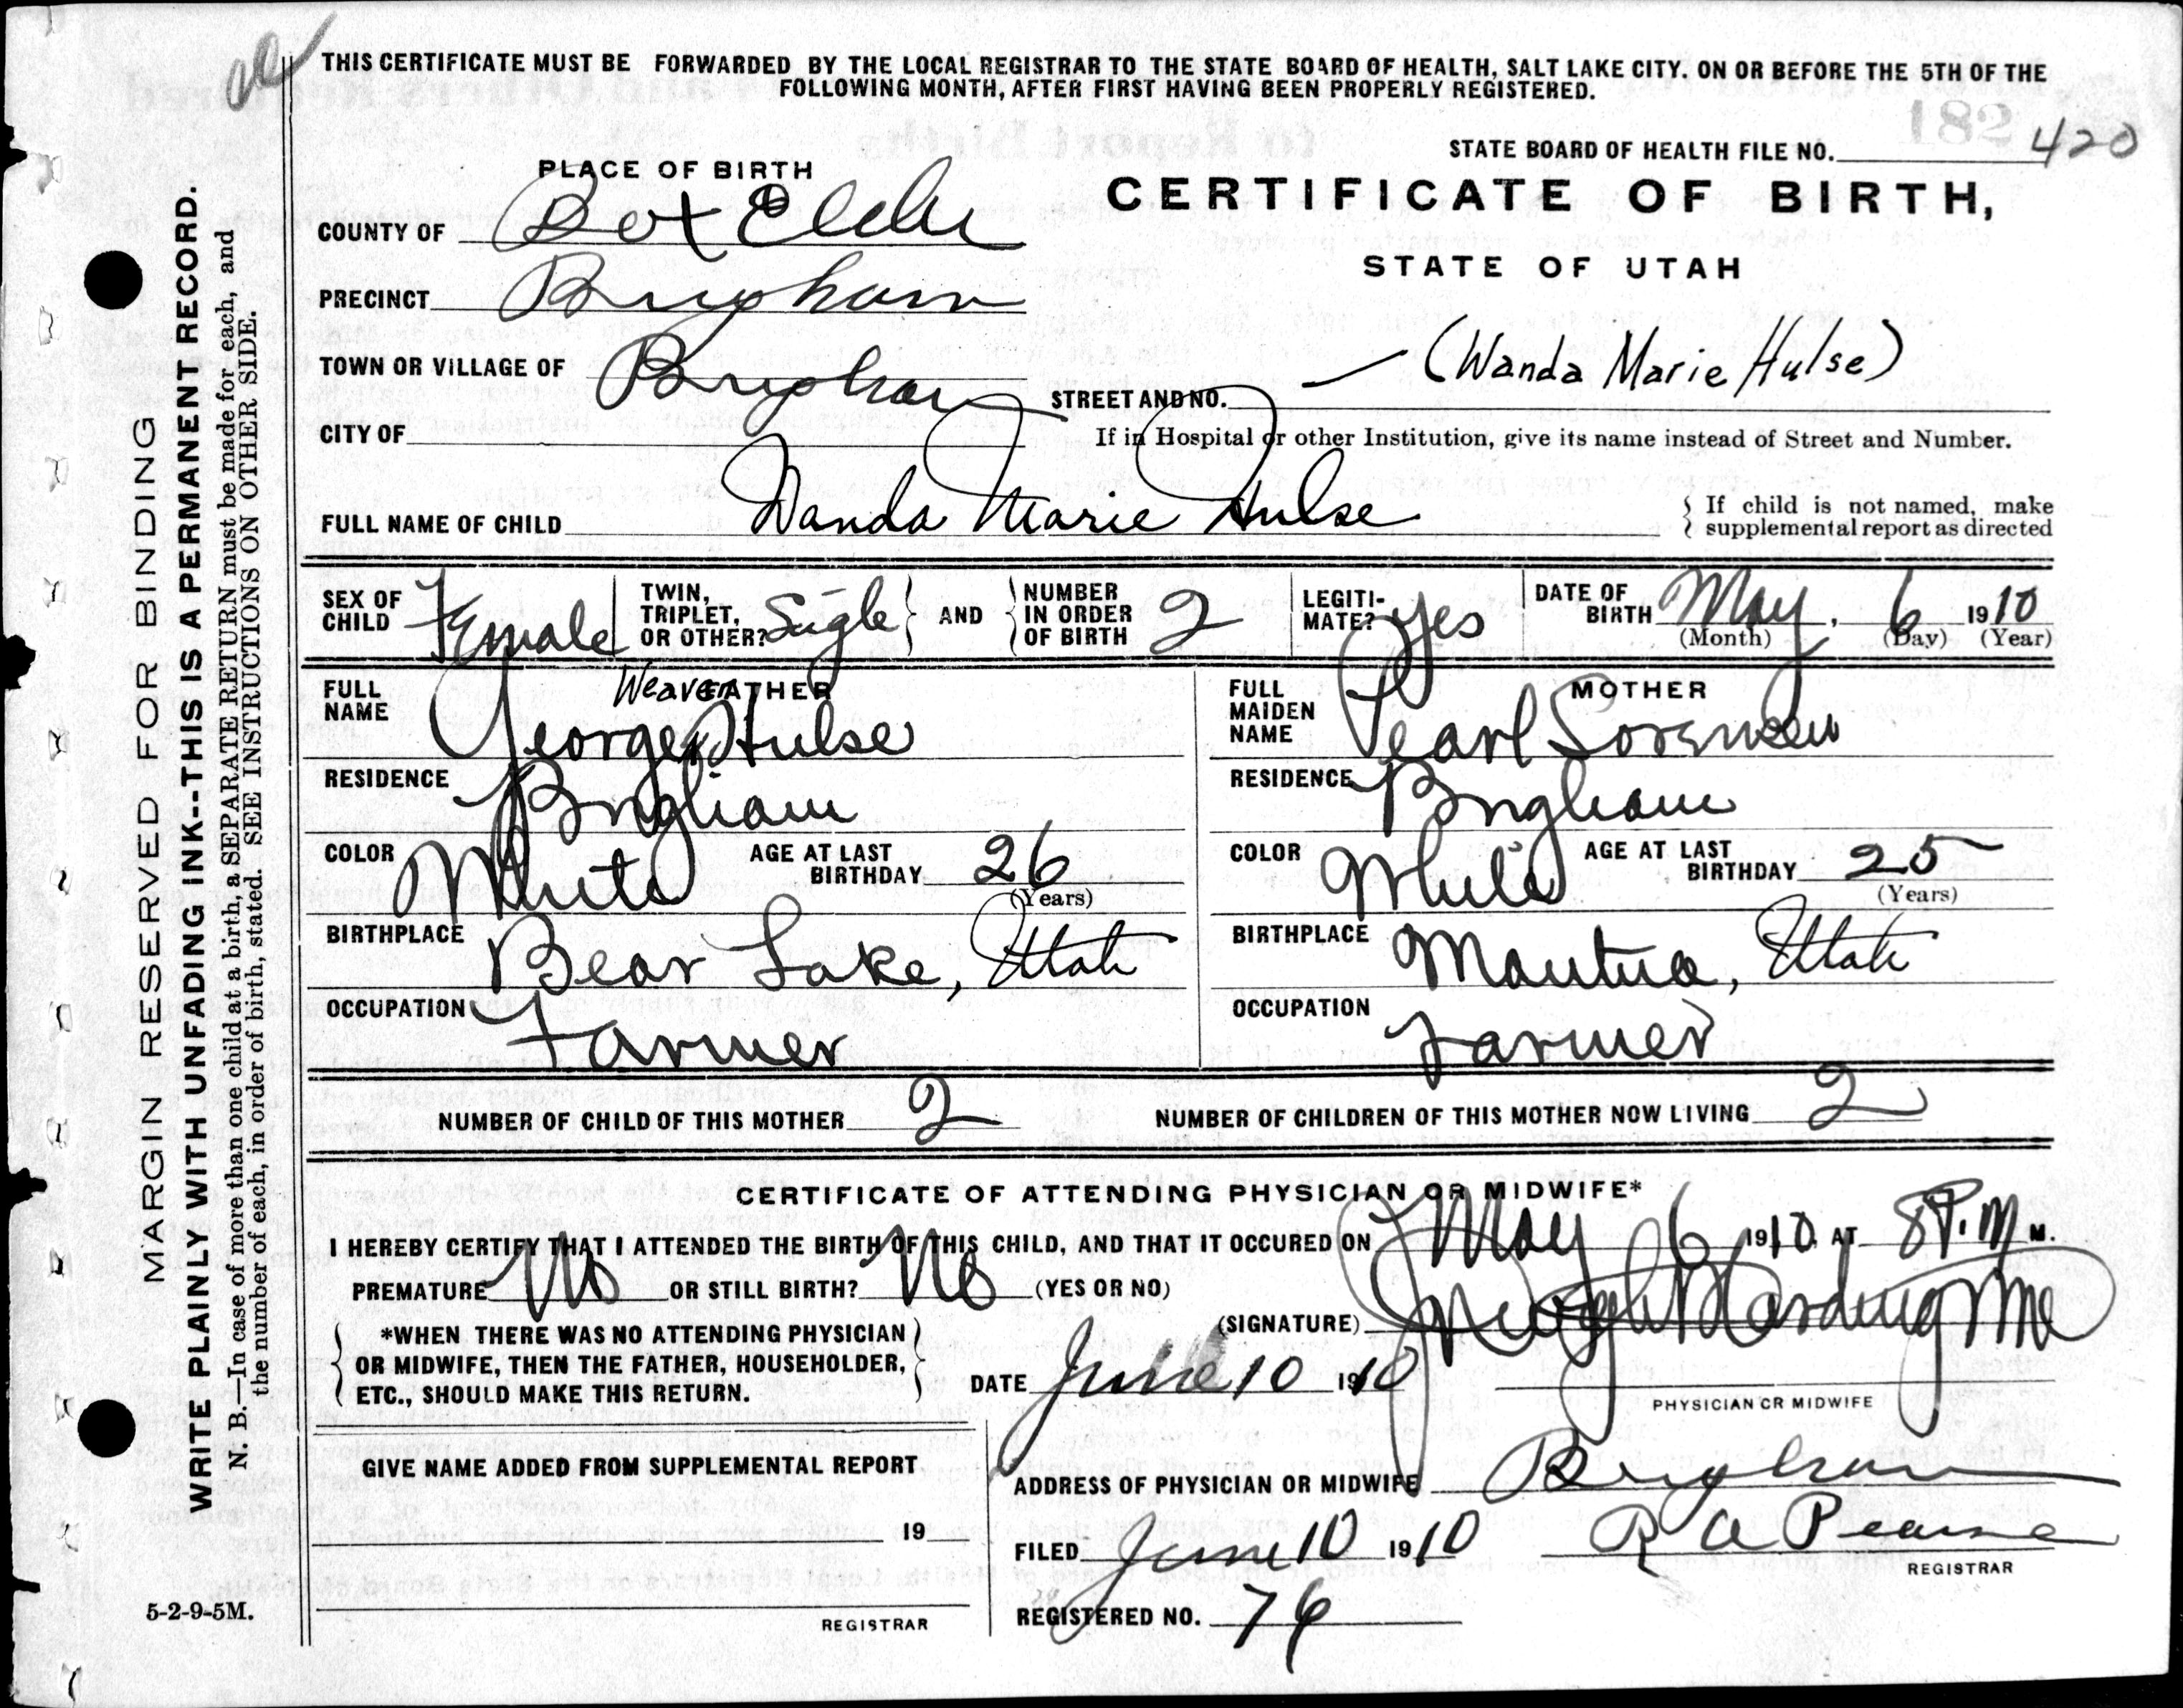 THIS CERTIFICATE MUST BE FORWARDED BY THE LOCAL REGISTRAR TO THE STATE BOARD OF HEALTH, SALT LAKE CITY, ON OR BEFORE THE 5TH OF THE
FOLLOWING MONTH, AFTER FIRST HAVING BEEN PROPERLY REGISTERED.
182
STATE BOARD OF HEALTH FILE NO. 420
PLACE OF BIRTH
CERTIFICATE OF BIRTH,
COUNTY OF Box Elder
STATE OF UTAH
PRECINCT Brigham
(Wanda Marie Hulse)
TOWN OR VILLAGE OF Brigham
STREET AND NO.
CITY OF
If in Hospital or other Institution, give its name instead of Street and Number.
FULL NAME OF CHILD Wanda Marie Hulse
{ If child is not named, make
supplemental report as directed
SEX OF CHILD Female
TWIN, TRIPLET, OR OTHER? Sigle } AND { NUMBER IN ORDER OF BIRTH 2
LEGITI-MATE? Yes
DATE OF BIRTH May, 6 1910
(Month) (Day) (Year)
FATHER
FULL NAME George Weaver Hulse
RESIDENCE Brigham
COLOR White AGE AT LAST BIRTHDAY 26
(Years)
BIRTHPLACE Bear Lake, Utah
OCCUPATION Farmer
MOTHER
FULL MAIDEN NAME Pearl Sorensen
RESIDENCE Brigham
COLOR White AGE AT LAST BIRTHDAY 25
(Years)
BIRTHPLACE Mantua, Utah
OCCUPATION Farmer
NUMBER OF CHILD OF THIS MOTHER 2 NUMBER OF CHILDREN OF THIS MOTHER NOW LIVING 2
CERTIFICATE OF ATTENDING PHYSICIAN OR MIDWIFE*
I HEREBY CERTIFY THAT I ATTENDED THE BIRTH OF THIS CHILD, AND THAT IT OCCURED ON May 6 1910, AT 8 P.M M.
PREMATURE No OR STILL BIRTH? No (YES OR NO)
(SIGNATURE) Harding
*WHEN THERE WAS NO ATTENDING PHYSICIAN
OR MIDWIFE, THEN THE FATHER, HOUSEHOLDER,
ETC., SHOULD MAKE THIS RETURN.
DATE June 10 1910
PHYSICIAN OR MIDWIFE
GIVE NAME ADDED FROM SUPPLEMENTAL REPORT
19
REGISTRAR
ADDRESS OF PHYSICIAN OR MIDWIFE Brigham
FILED June 10 1910 R A Pearse
REGISTRAR
REGISTERED NO. 76
MARGIN RESERVED FOR BINDING
WRITE PLAINLY WITH UNFADING INK--THIS IS A PERMANENT RECORD.
N. B.—In case of more than one child at a birth, a SEPARATE RETURN must be made for each, and
the number of each, in order of birth, stated. SEE INSTRUCTIONS ON OTHER SIDE.
5-2-9-5M.